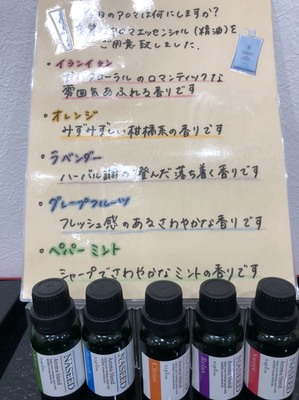 今日のアロマは何にしますか?
アロマエッセンシャル(精油)を
ご用意致しました.
・イランイラン
フローラルのロマンティックな
雰囲気あふれる香りです
・オレンジ
みずみずしい柑橘系の香りです
・ラベンダー
ハーバル調の澄んだ落ち着く香りです
・グレープフルーツ
フレッシュ感のあるさわやかな香りです
・ペパーミント
シャープでさわやかなミントの香りです
NASEED
NASEED
NASEED
NASEED
NASEED
Citrus
Relax